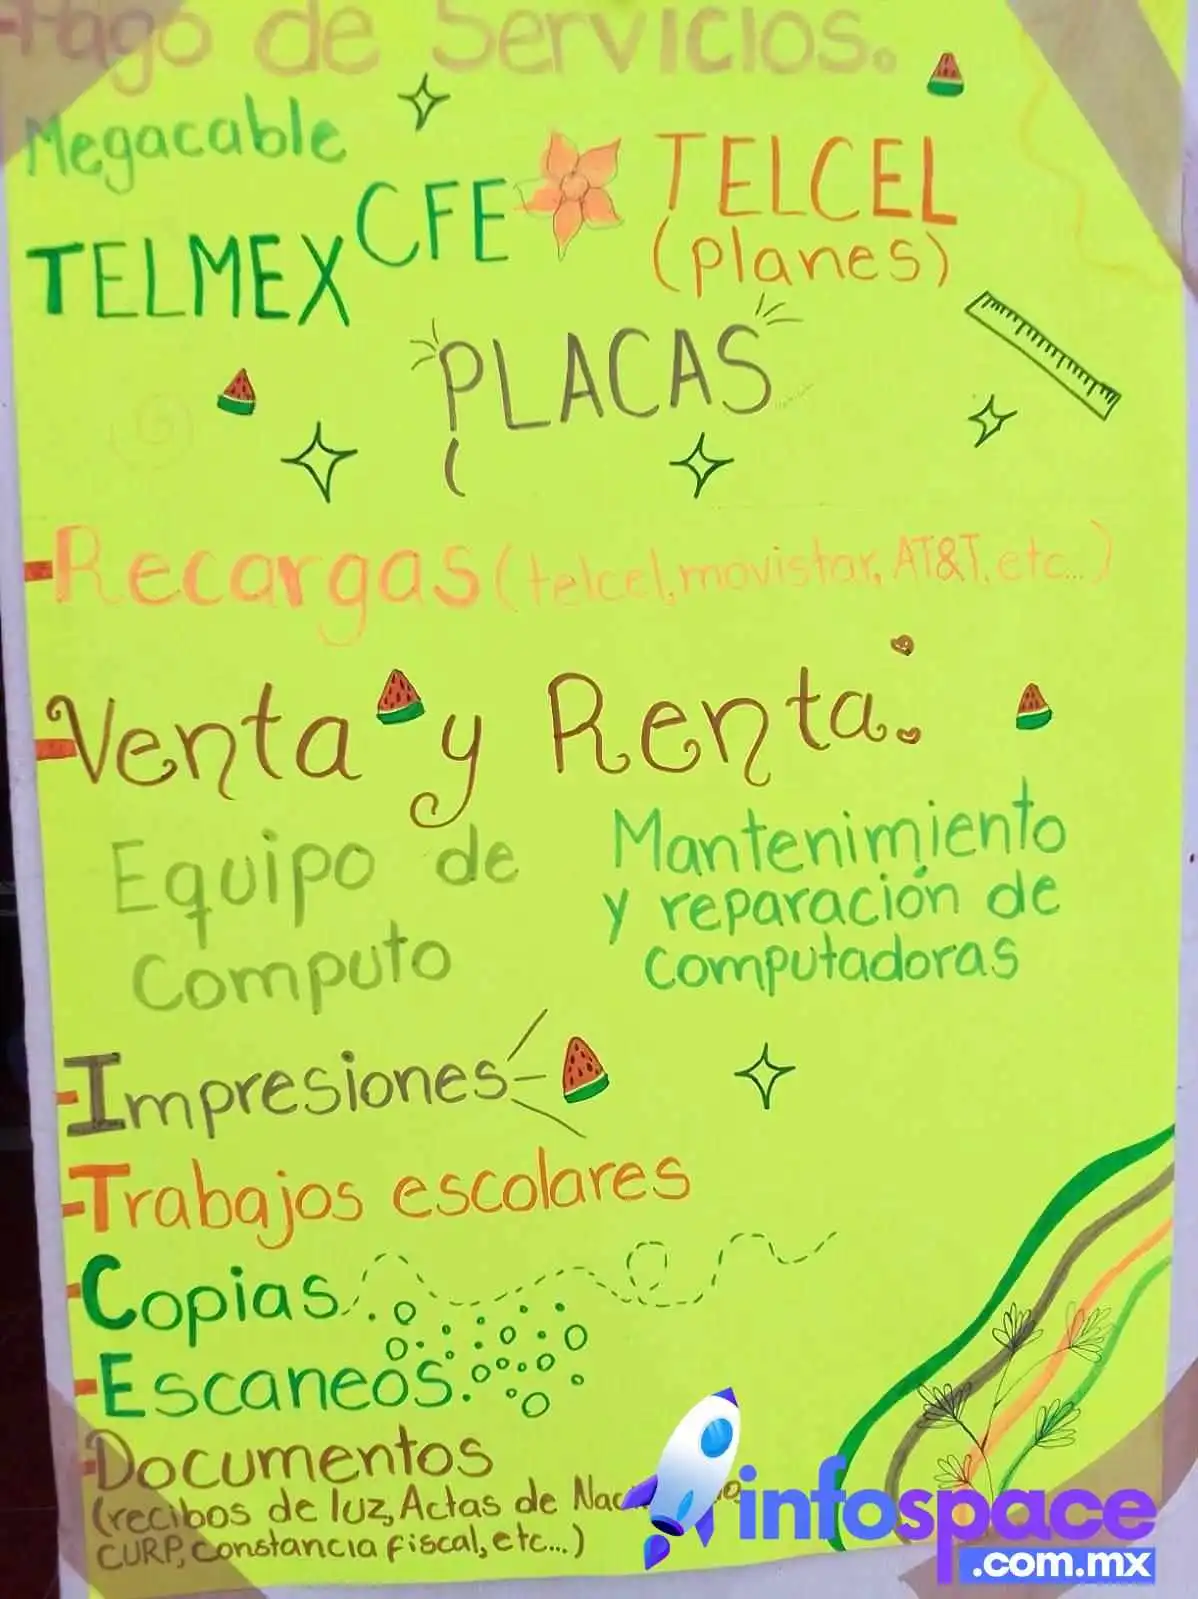 Pago de Servicios.
Megacable
TELMEX
CFE
TELCEL
(planes)
PLACAS
-Recargas (telcel, movistar, AT&T, etc...)
-Venta y Renta.
Equipo de
Computo
Mantenimiento
y reparación de
computadoras
-Impresiones
-Trabajos escolares
-Copias
-Escaneos.
-Documentos
(recibos de luz, Actas de
CURP, constancia fiscal, etc...)
infospace
.com.mx